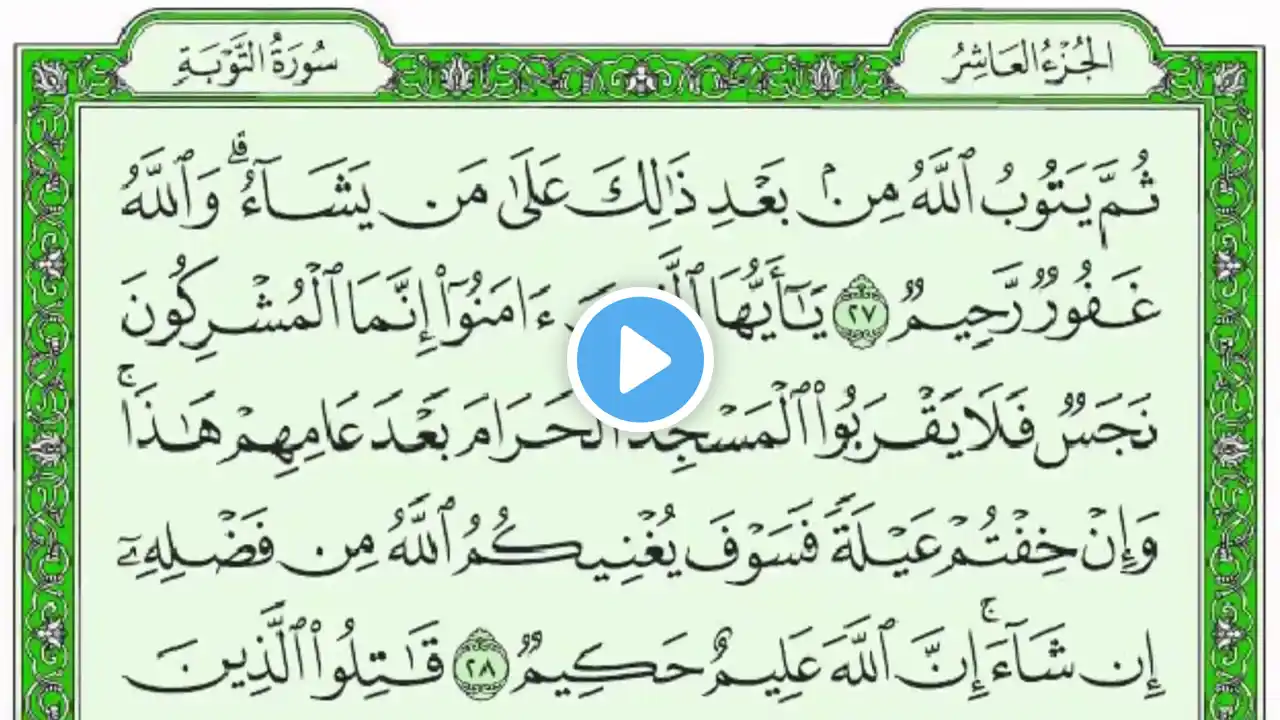 الجُزْءُ العَاشِرُ
سُورَةُ التَّوْبَةِ
ثُمَّ يَتُوبُ ٱللَّهُ مِنۢ بَعْدِ ذَٰلِكَ عَلَىٰ مَن يَشَآءُۗ وَٱللَّهُ
غَفُورٌ رَّحِيمٌ ٢٧ يَٰٓأَيُّهَا ءَامَنُوٓاْ إِنَّمَا ٱلْمُشْرِكُونَ
نَجَسٌ فَلَا يَقْرَبُواْ ٱلْمَسْجِدَ ٱلْحَرَامَ بَعْدَ عَامِهِمْ هَٰذَاۚ
وَإِنْ خِفْتُمْ عَيْلَةً فَسَوْفَ يُغْنِيكُمُ ٱللَّهُ مِن فَضْلِهِۦٓ
إِن شَآءَۚ إِنَّ ٱللَّهَ عَلِيمٌ حَكِيمٌ ٢٨ قَٰتِلُواْ ٱلَّذِينَ